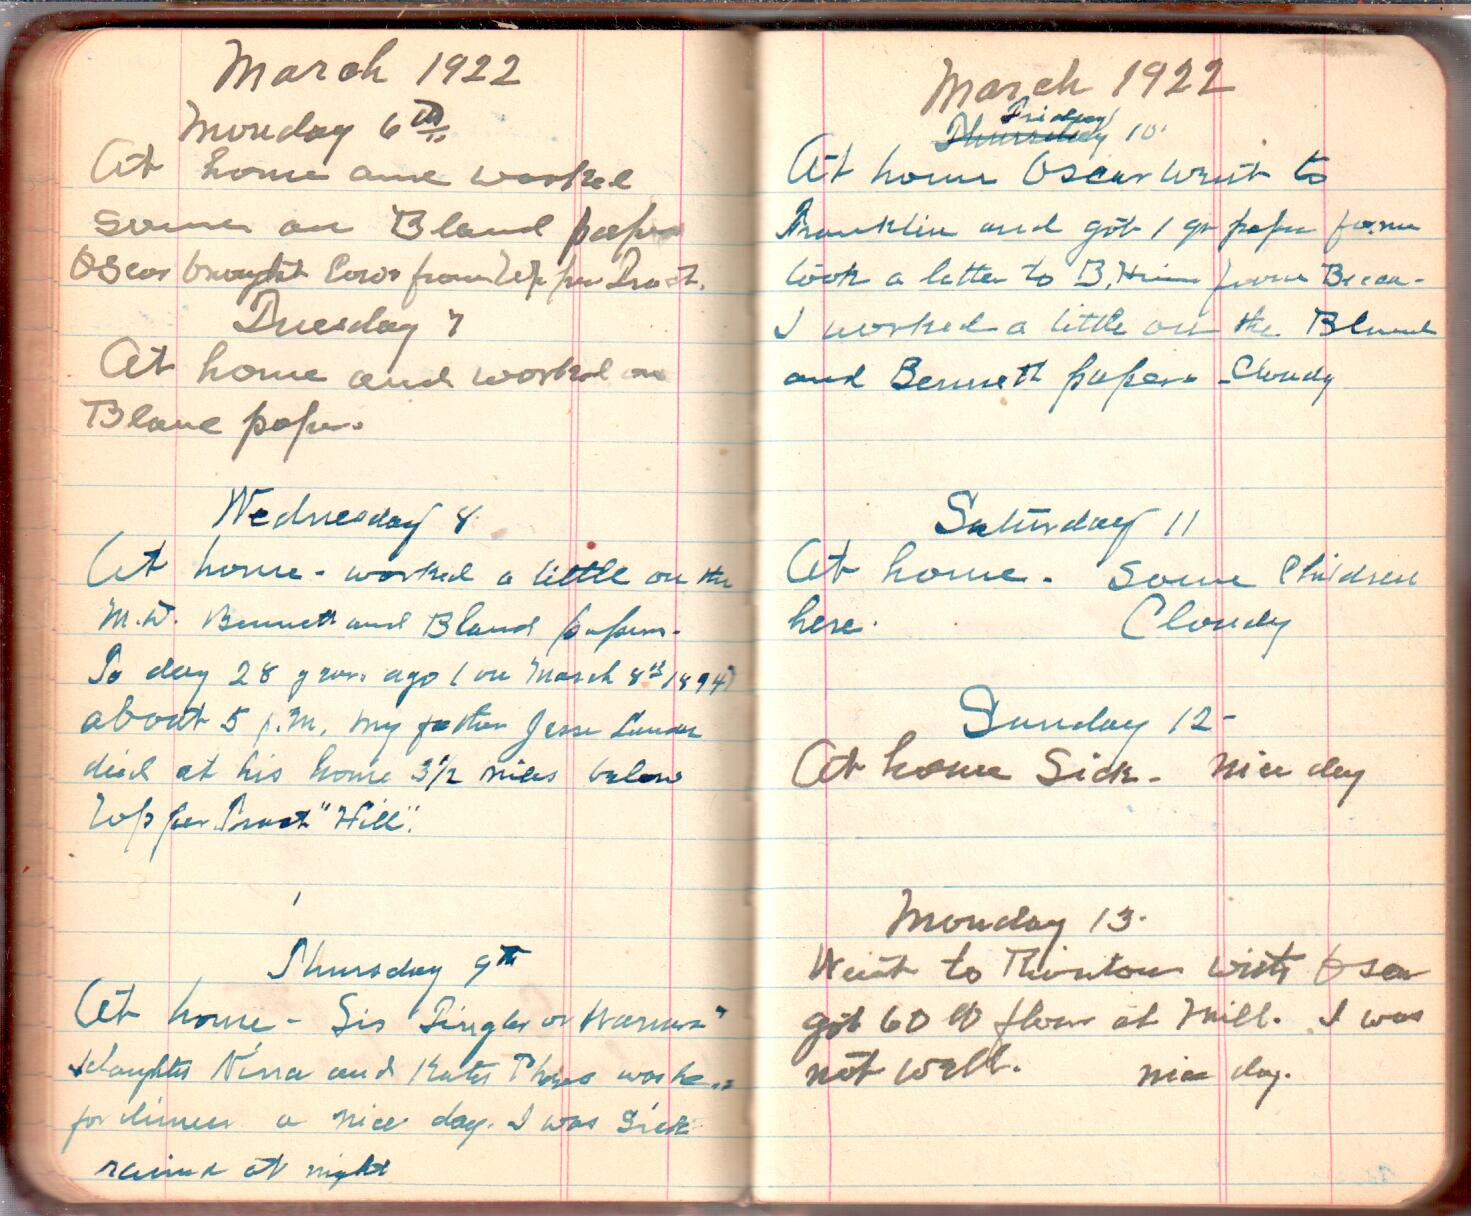 March 1922
Monday 6th
At home and worked
some on Bland paper
Oscar brought Cows from Upper Tract.
Tuesday 7
At home and worked on
Bland paper.
Wednesday 8
At home - worked a little on the
M.W. Bennett and Bland papers.
To day 28 years ago (on March 8th 1894)
about 5 P.M. my father Jesse
died at his home 3 1/2 miles below
Upper Tract "Hill".
Thursday 9th
At home - Sis
daughter Nina and was here
for dinner a nice day. I was Sick
rained at night
March 1922
Friday
Thursday 10.
At home Oscar went to
Franklin and got 1 qr paper for me
took a letter to B. from
I worked a little on the Bland
and Bennett papers - Cloudy
Saturday 11
At home. Some Children
here. Cloudy
Sunday 12-
At home Sick - nice day
Monday 13.
Went to Thorntons with Oscar
got 60 lb flour at Mill. I was
not well. nice day.